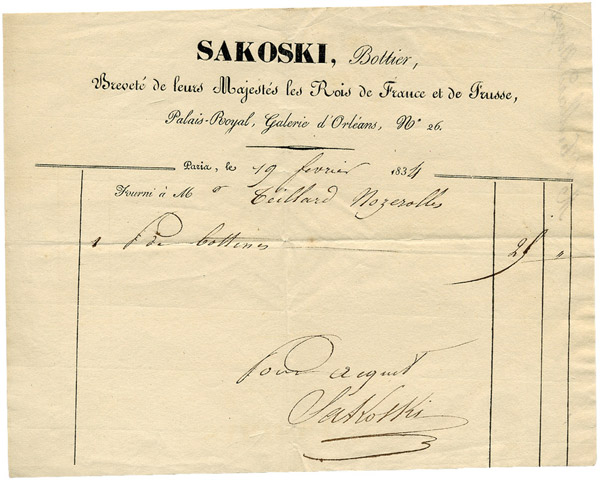 SAKOSKI, Bottier,
Breveté de leurs Majestés les Rois de France et de Prusse,
Palais-Royal, Galerie d'Orléans, N° 26.
Paris, le 19 février 1834
Fourni à M r Teillard Nozerolles
1 P. de bottines 25 "
Pour acquit
Sakoski